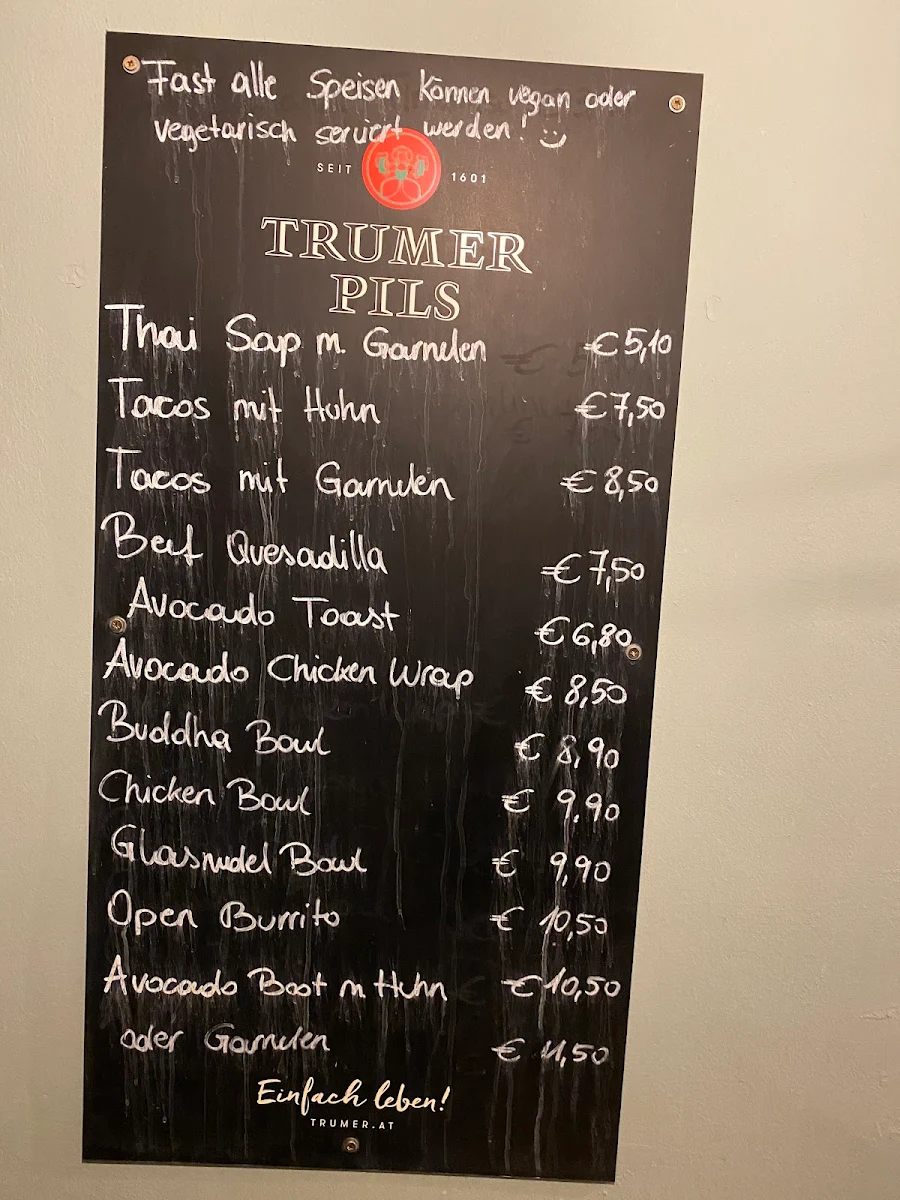 Fast alle Speisen können vegan oder
vegetarisch serviert werden! :)
SEIT 1601
TRUMER
PILS
Thai Sap m. Garnelen €5,10
Tacos mit Huhn €7,50
Tacos mit Garnelen €8,50
Beef Quesadilla €7,50
Avocado Toast €6,80
Avocado Chicken Wrap €8,50
Buddha Bowl €8,90
Chicken Bowl €9.90
Glasnudel Bowl €9,90
Open Burrito €10,50
Avocado Boot m Huhn €10,50
oder Garnelen €11,50
Einfach leben!
TRUMER.AT